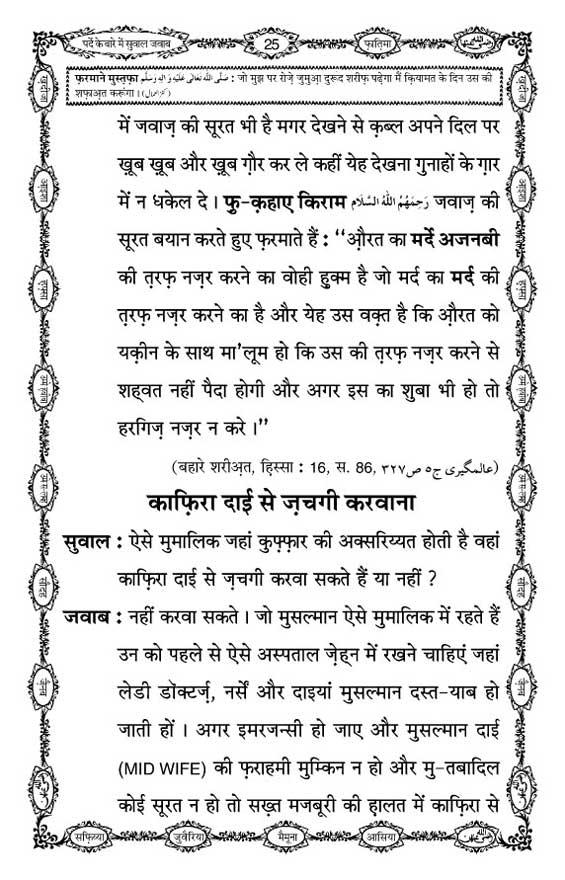 पर्दे के बारे में सुवाल जवाब
25
फ़ातिमा
फ़रमाने मुस्तफ़ा صَلَّى اللهُ تَعَالٰى عَلَيْهِ وَاٰلِهٖ وَسَلَّم : जो मुझ पर रोज़े जुमुआ़ दुरूद शरीफ़ पढ़ेगा मैं क़ियामत के दिन उस की
शफ़ाअ़त करूंगा। (کنز العمال)
में जवाज़ की सूरत भी है मगर देखने से क़ब्ल अपने दिल पर
ख़ूब ख़ूब और ख़ूब ग़ौर कर ले कहीं येह देखना गुनाहों के ग़ार
में न धकेल दे। फु-क़हाए किराम رَحِمَهُمُ اللهُ السَّلَام जवाज़ की
सूरत बयान करते हुए फ़रमाते हैं : ‘‘औ़रत का मर्दे अजनबी
की त़रफ़ नज़र करने का वोही हुक्म है जो मर्द का मर्द की
त़रफ़ नज़र करने का है और येह उस वक़्त है कि औ़रत को
यक़ीन के साथ मा'लूम हो कि उस की त़रफ़ नज़र करने से
शह्वत नहीं पैदा होगी और अगर इस का शुबा भी हो तो
हरगिज़ नज़र न करे।’’
(बहारे शरीअ़त, हिस्सा : 16, स. 86, عالمگیری ج٥ ص٣٢٧)
काफ़िरा दाई से ज़चगी करवाना
सुवाल : ऐसे मुमालिक जहां कुफ़्फ़ार की अक्सरिय्यत होती है वहां
काफ़िरा दाई से ज़चगी करवा सकते हैं या नहीं ?
जवाब : नहीं करवा सकते। जो मुसल्मान ऐसे मुमालिक में रहते हैं
उन को पहले से ऐसे अस्पताल ज़ेह्न में रखने चाहिएं जहां
लेडी डॉक्टर्ज़, नर्सें और दाइयां मुसल्मान दस्त-याब हो
जाती हों। अगर इमरजन्सी हो जाए और मुसल्मान दाई
(MID WIFE) की फ़राहमी मुम्किन न हो और मु-तबादिल
कोई सूरत न हो तो सख़्त मजबूरी की ह़ालत में काफ़िरा से
सफ़िय्या
जुवैरिया
मैमूना
आसिया